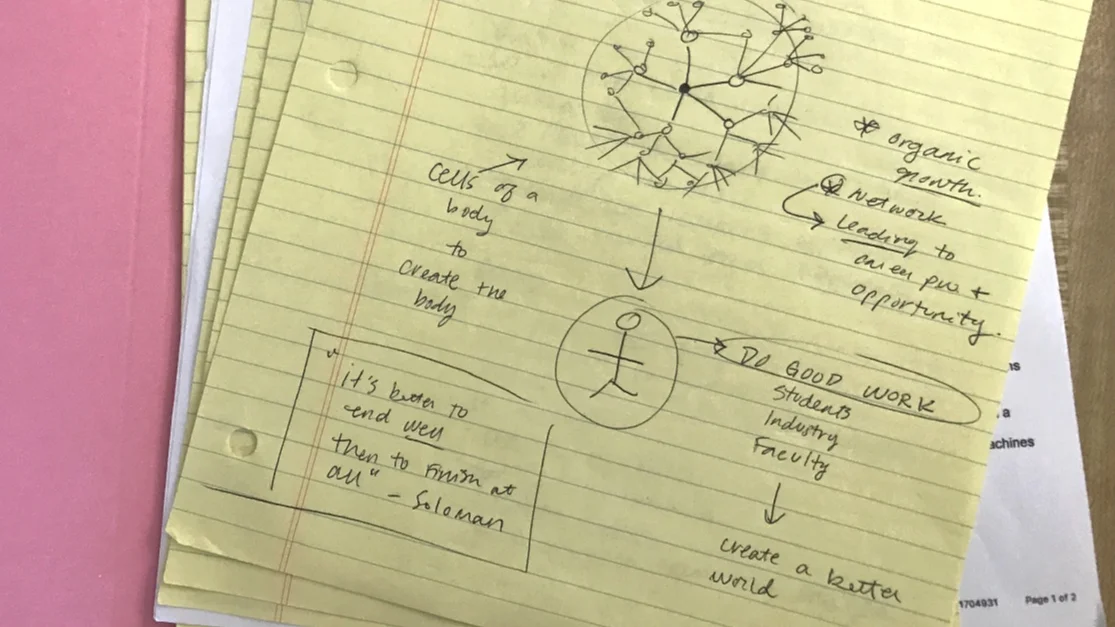 * organic
growth.
* Network
leading to
opportunity.
cells of a
body
to
create the
body
DO GOOD WORK
Students
Industry
Faculty
create a better
world
"it's better to
end well
then to finish at
all" - Soloman
ns
a
achines
1704931 Page 1 of 2